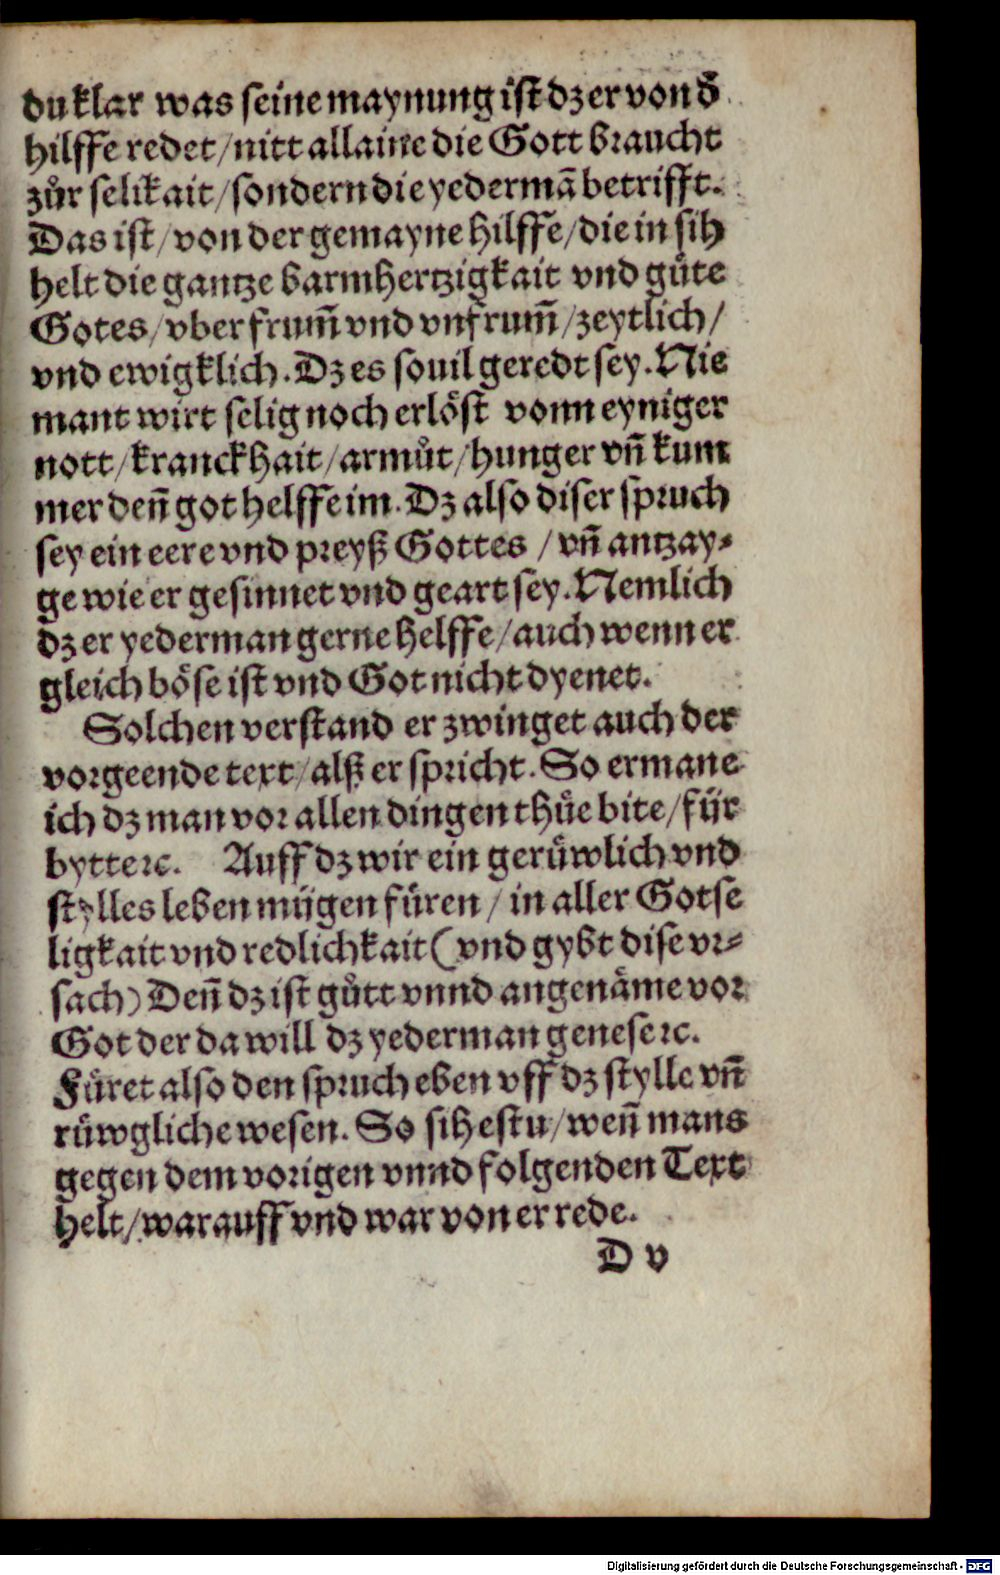 du klar was seine maynung ist dz er von d̄
hilffe redet/nitt allaine die Gott braucht
zůr selikait/sondern die yedermā betrifft.
Das ist/von der gemayne hilffe/die in sih
helt die gantze barmhertzigkait vnd gůte
Gotes/vber frum̄ vnd vnfrum̄/zeytlich/
vnd ewigklich. Dz es souil geredt sey. Nie
mant wirt selig noch erlöst vonn eyniger
nott/kranckhait/armůt/hunger vn̄ kum
mer den̄ got helffe im. Dz also diser spruch
sey ein eere vnd preyß Gottes / vn̄ antzay⸗
ge wie er gesinnet vnd geart sey. Nemlich
dz er yederman gerne helffe/auch wenn er
gleich böse ist vnd Got nicht dyenet.
Solchen verstand er zwinget auch der
vorgeende text/alß er spricht. So ermane
ich dz man vor allen dingen thüe bite/für
bytte ꝛc. Auff dz wir ein gerüwlich vnd
stylles leben mügen füren / in aller Gotse
ligkait vnd redlichkait (vnd gybt dise vr⸗
sach) Den̄ dz ist gůtt vnnd angenäme vor
Got der da will dz yederman genese ꝛc.
Füret also den spruch eben vff dz stylle vn̄
rüwgliche wesen. So sihestu/wen̄ mans
gegen dem vorigen vnnd folgenden Text
helt/warauff vnd war von er rede.
D v
Digitalisierung gefördert durch die Deutsche Forschungsgemeinschaft - DFG